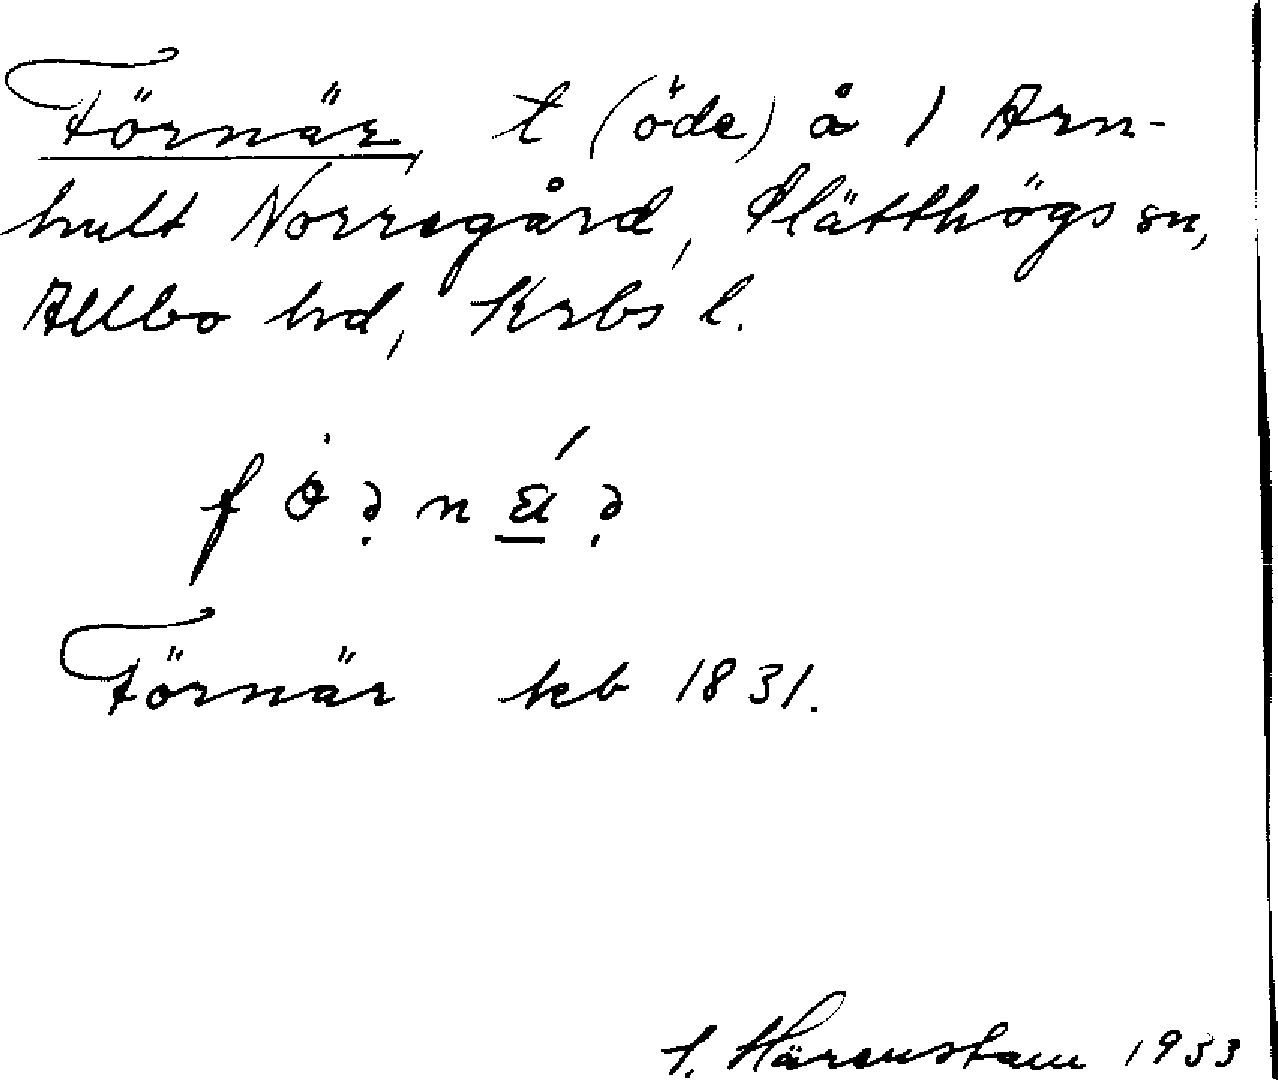 Förnär, t (öde) å 1 Arn-
hult Norregård, Slätthögs sn,
Allbo hd, Krbs l.
Förnär kb 1831.
Härenstam 1933